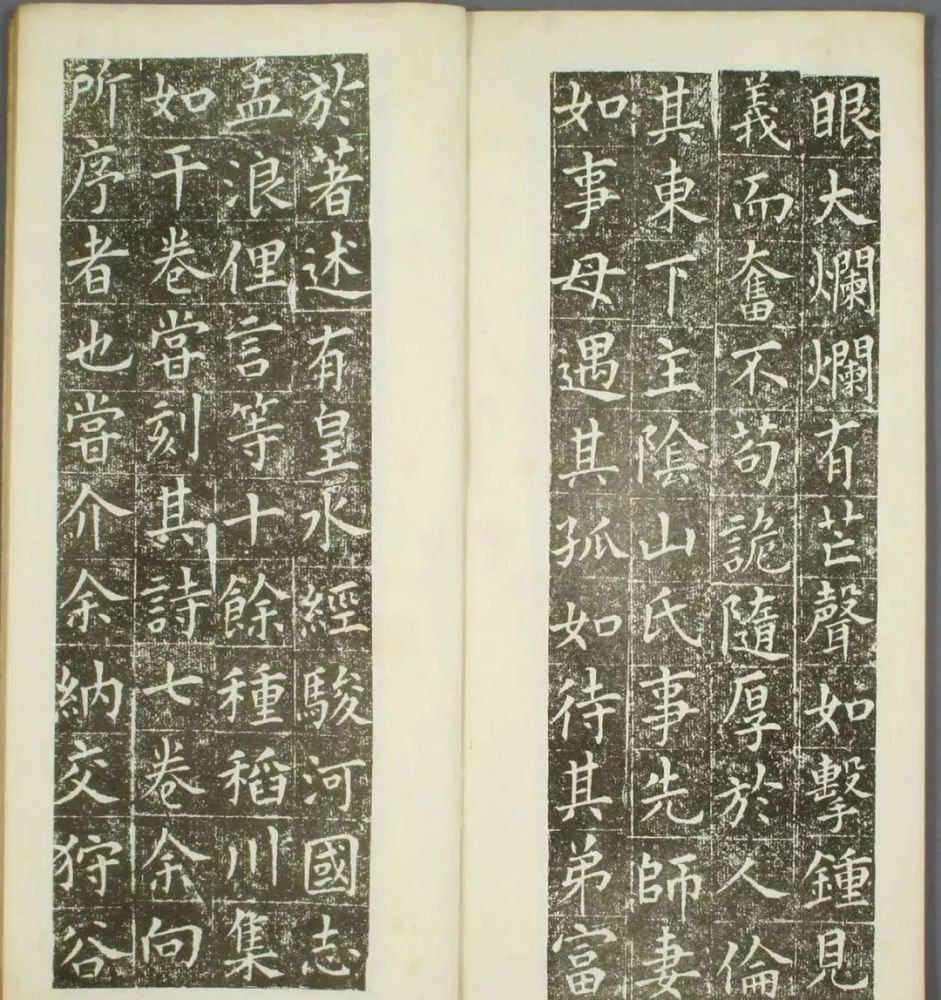 眼大爛爛有芒聲如擊鍾見
義而奮不苟詭隨厚於人倫
其東下主陰山氏事先師妻
如事母遇其孤如待其弟富
於著述有皇永經駿河國志
孟浪俚言等十餘種稻川集
如干卷嘗刻其詩七卷余向
所序者也嘗介余納交狩谷